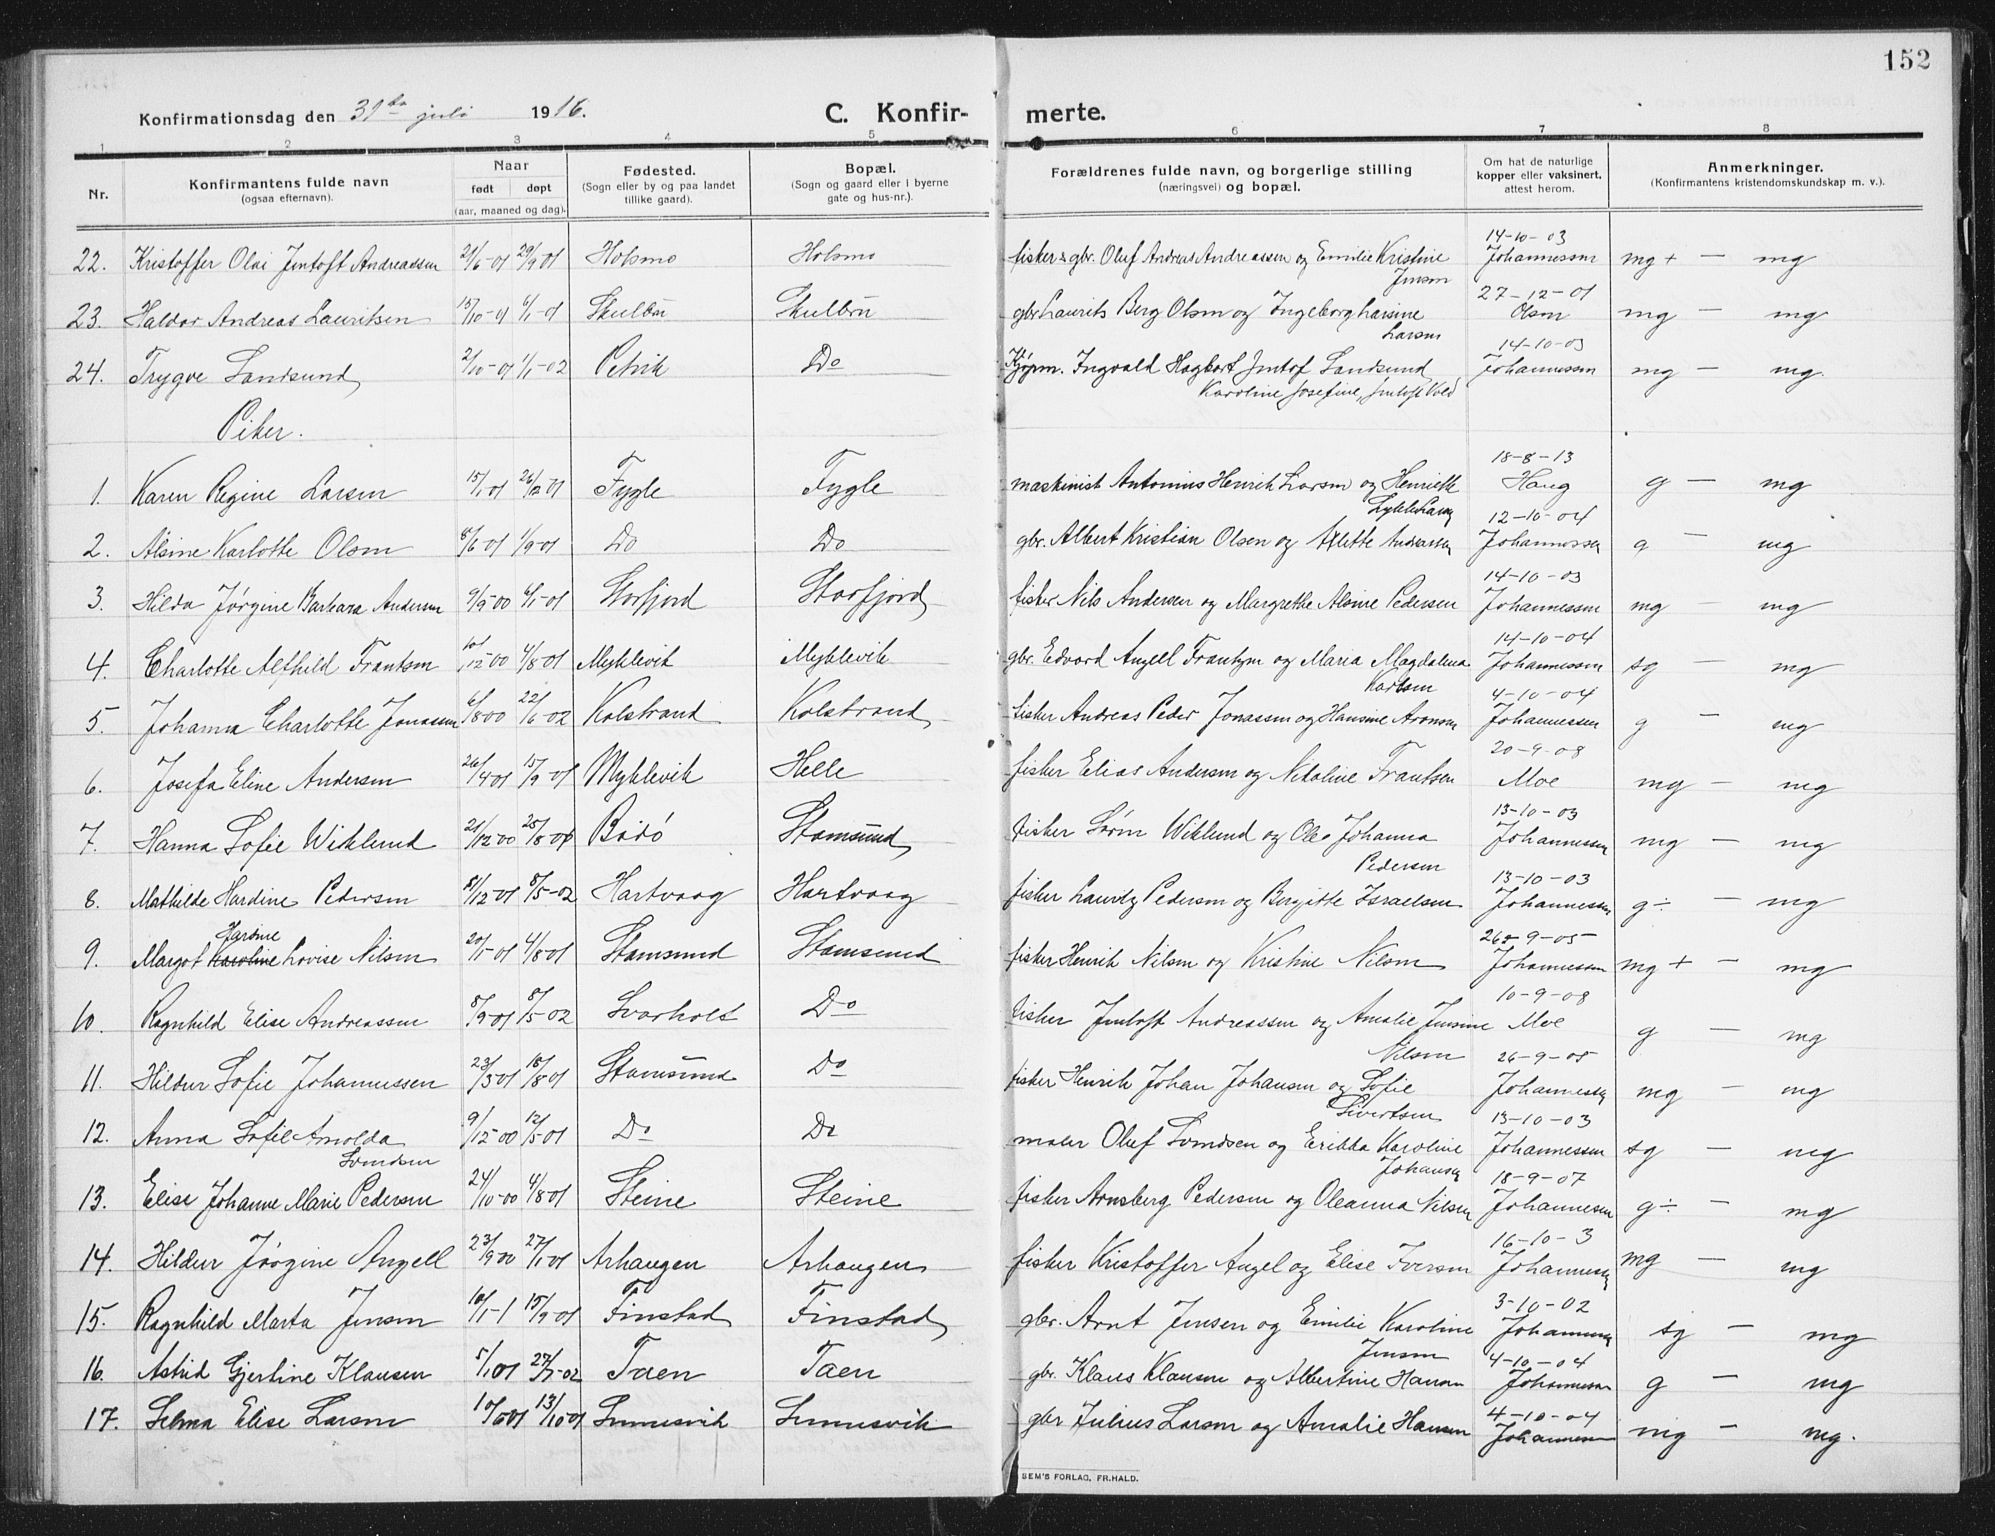 152
Konfirmationsdag den 31te juli 1916.
C. Konfir-
merte.
1 2 3 4 5 6 7 8
Nr.
Konfirmantens fulde navn
(ogsaa efternavn).
Naar
født døpt
(aar, maaned og dag).
Fødested.
(Sogn eller by og paa landet
tillike gaard).
Bopæl.
(Sogn og gaard eller i byerne
gate og hus-nr.).
Forældrenes fulde navn, og borgerlige stilling
(næringsvei) og bopæl.
Om hat de naturlige
kopper eller vaksinert,
attest herom.
Anmerkninger.
(Konfirmantens kristendomskundskap m. v.).
14-10-03
22. Kristoffer Olai Jentoft Andreassen 21/6-01 29/9 01 Holsmo Holsmo fisker & gbr. Oluf Andreas Andreassen og Emilie Kristine Johannessen mg + — mg
Jensen
27-12-01
23. Haldor Andreas Lauritsen 15/10-01 6/1-01 Skulbru Skulbru gbr. Laurits Berg Olsen og Ingeborg Larsine Olsen mg — mg
Larsen
14-10-03
24. Trygve Landsund 2/10-01 1/1-02 Petvik Do Kjøpm. Ingvald Hagbart Jentof Landsund Johannessen mg — mg.
Karoline Josefine, Jentoft Kold
Piker.
18-8-13
1. Karen Regine Larsen 15/1 01 26/12 01 Fygle Fygle maskinist Antonius Henrik Larsen og Henriette Haug g — mg
12-10-04
2. Alsine Karlotte Olsen 8/6 01 1/9-01 Do Do gbr. Albert Kristian Olsen og Alette Andreassen Johannessen g — mg
14-10-03
3. Hilda Jørgine Barbara Andersen 9/9-00 6/1-01 Storfjord Storfjord fisker Nils Andersen og Margrethe Alsine Pedersen Johannessen mg mg
14-10-04
4. Charlotte Alfhild Frantsen 10/12-00 4/8 01 Myklevik Myklevik gbr. Edvard Angell Frantzen og Maria Magdalena Johannessen sg — mg
Karlsen
4-10-04
5. Johanna Charlotte Jonassen 6/8 00 22/6-02 Kolstrand Kolstrand fisker Andreas Peder Jonassen og Hansine Aronsen Johannessen g — mg
20-9-08
6. Josefa Eline Andersen 26/4 01 15/9-01 Myklevik Helle fisker Elias Andersen og Nikoline Frantsen Moe mg — mg
13-10-03
7. Hanna Sofie Wiklund 21/12 00 25/8-01 Bodø Stamsund fisker Søren Wiklund og Ole Johanna Johannessen mg — mg
Pedersen
13-10-03
8. Mathilde Hardine Pedersen 5/12-01 8/5-02 Hartvaag Hartvaag fisker Lauritz Pedersen og Bergitte Israelsen Johannessen g ÷ — mg
Hardine
26-9-05
9. Margot Karoline Lovise Nilsen 20/5-01 4/8-01 Stamsund Stamsund fisker Henrik Nilsen og Kristine Nilsen Johannessen mg + — mg
10-9-08
10. Ragnhild Elise Andreassen 8/9-01 8/5-02 Svarholt Do fisker Jentoft Andreassen og Amalie Jensine Moe g — mg
Nilsen
26-9-05
11. Hildur Sofie Johannessen 23/5 01 18/8 01 Stamsund Do fisker Henrik Johan Johansen og Sofie Johannessen mg — mg
Sivertsen
13-10-03
12. Anna Sofie Arnolda 9/12 00 12/5 01 Do Do maler Oluf Svendsen og Erikka Karoline Johannessen sg — mg
Svendsen
Johansen
18-9-07
13. Elise Johanne Marie Pedersen 24/10-00 4/8 01 Steine Steine fisker Arnsberg Pedersen og Oleanna Nilsen Johannessen g ÷ — mg
16-10-3
14. Hildur Jørgine Angell 23/9 00 27/1 01 Arhaugen Arhaugen fisker Kristoffer Angel og Elise Iversen Johannessen mg — mg
3-10-02
15. Ragnhild Marta Jensen 10/1-1 15/9-01 Finstad Finstad gbr. Arnt Jensen og Emilie Karoline Johannessen sg — mg
Jensen
4-10-04
16. Astrid Gjertine Klausen 5/1 01 27/7-02 Taen Taen gbr. Klaus Klausen og Albertine Hansen Johannessen g — mg
4-10-04
17. Selma Elise Larsen 13/10-01 Sennesvik Sennesvik gbr Julius Larsen og Amalie Hansen Johannessen mg — mg.
SEM'S FORLAG, FR.HALD.